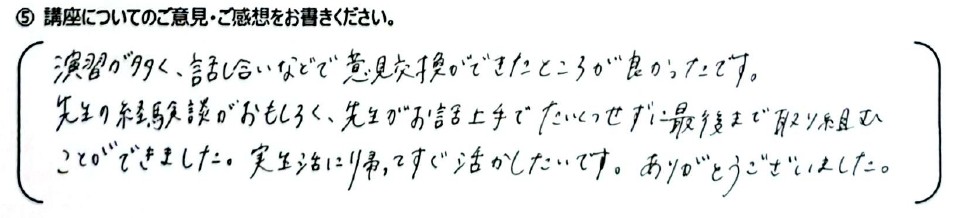 ⑤ 講座についてのご意見・ご感想をお書きください。
演習が多く、話し合いなどで意見交換ができたところが良かったです。
先生の経験談がおもしろく、先生がお話上手でたいくつせずに最後まで取り組む
ことができました。実生活に帰ってすぐ活かしたいです。ありがとうございました。